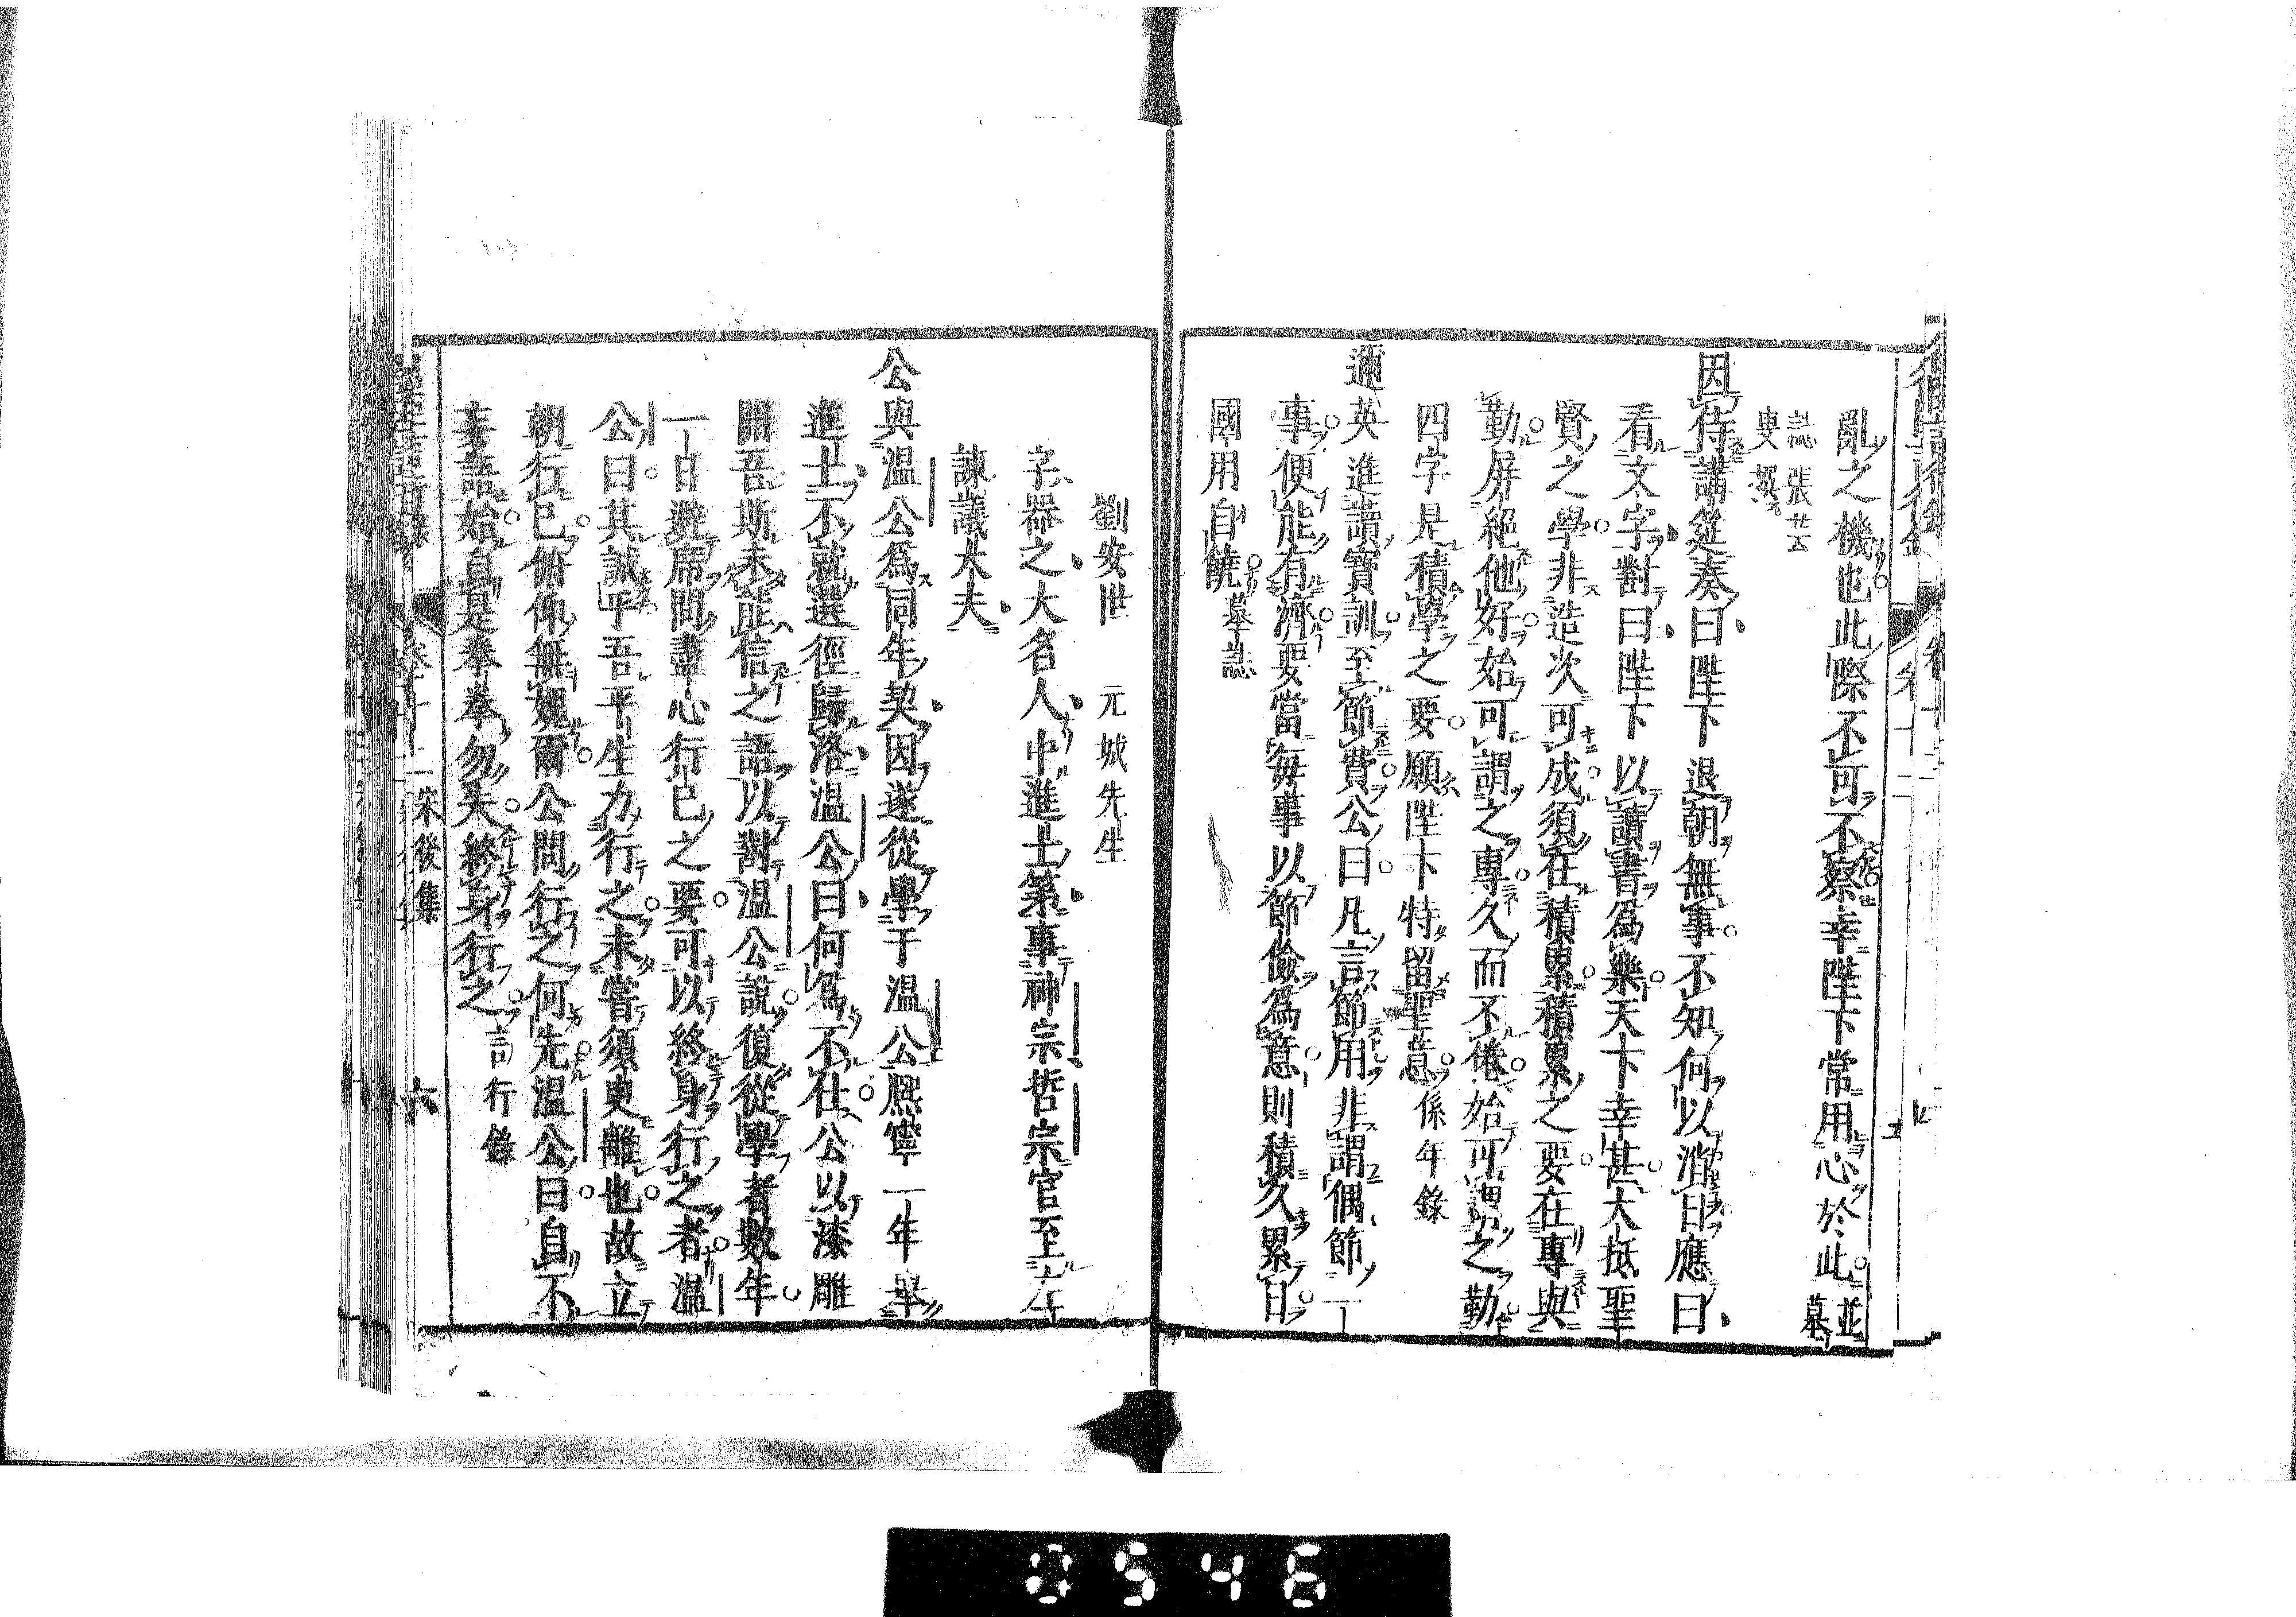 亂之機也此際不可不察幸陛下常用心於此並墓
誌張芸
叟撰
因侍講筵奏曰陛下退朝無事不知何以消日應曰
看文字對曰陛下以讀書爲樂天下幸甚大抵聖
賢之學非造次可成須在積累積累之要在專與
勤屏絕他好始可謂之專久而不倦始可謂之勤
四字是積學之要願陛下特留聖意係年錄
邇英進讀寶訓至節費公曰凡言節用非謂偶節一
事便能有濟要當每事以節儉爲意則積久累日
國用自饒墓誌
劉安世 元城先生
字器之大名人中進士第事神宗哲宗官至左
諫議大夫
公與溫公爲同年契因遂從學于溫公熙寧一年舉
進士不就選徑歸洛溫公曰何爲不仕公以漆雕
開吾斯未能信之語以對溫公說復從學者數年
一日避席問盡心行己之要可以終身行之者溫
公曰其誠乎吾平生力行之未嘗須臾離也故立
朝行己俯仰無媿爾公問行之何先溫公曰自不
妄語始自是拳拳勿失終身行之言行錄
宋後集
六
0546